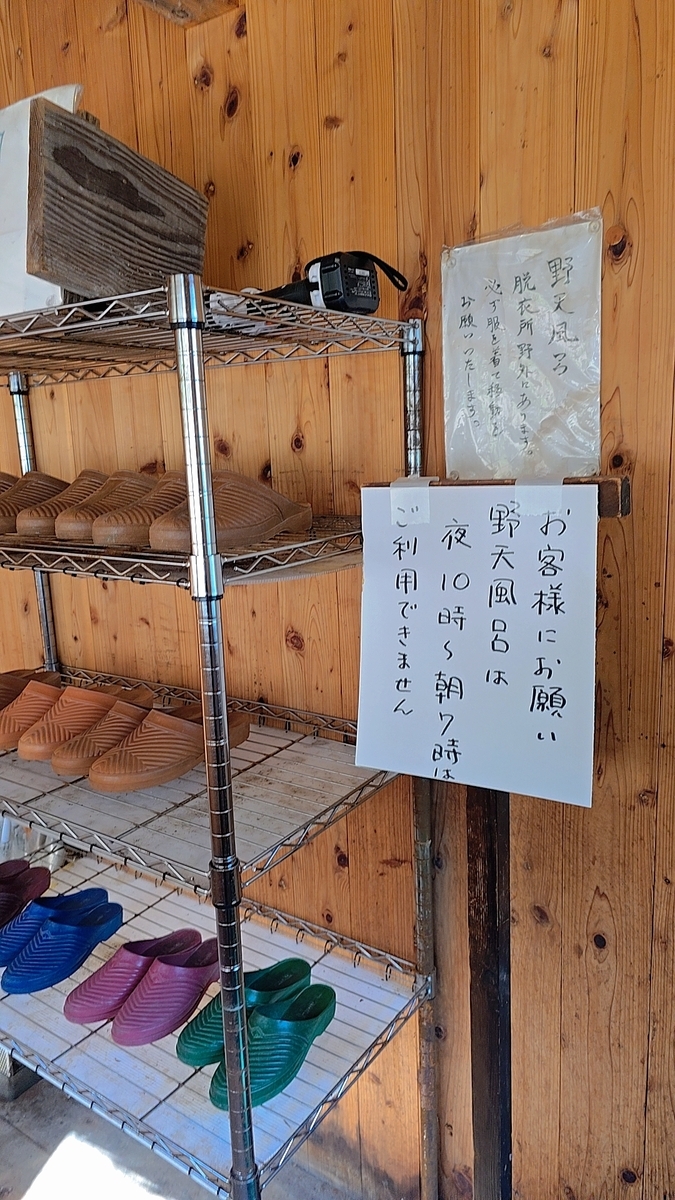 野天風ろ
脱衣所野外にあります。
必ず服を着て移動を
お願いいたします。
お客様にお願い
野天風呂は
夜10時～朝7時は
ご利用できません